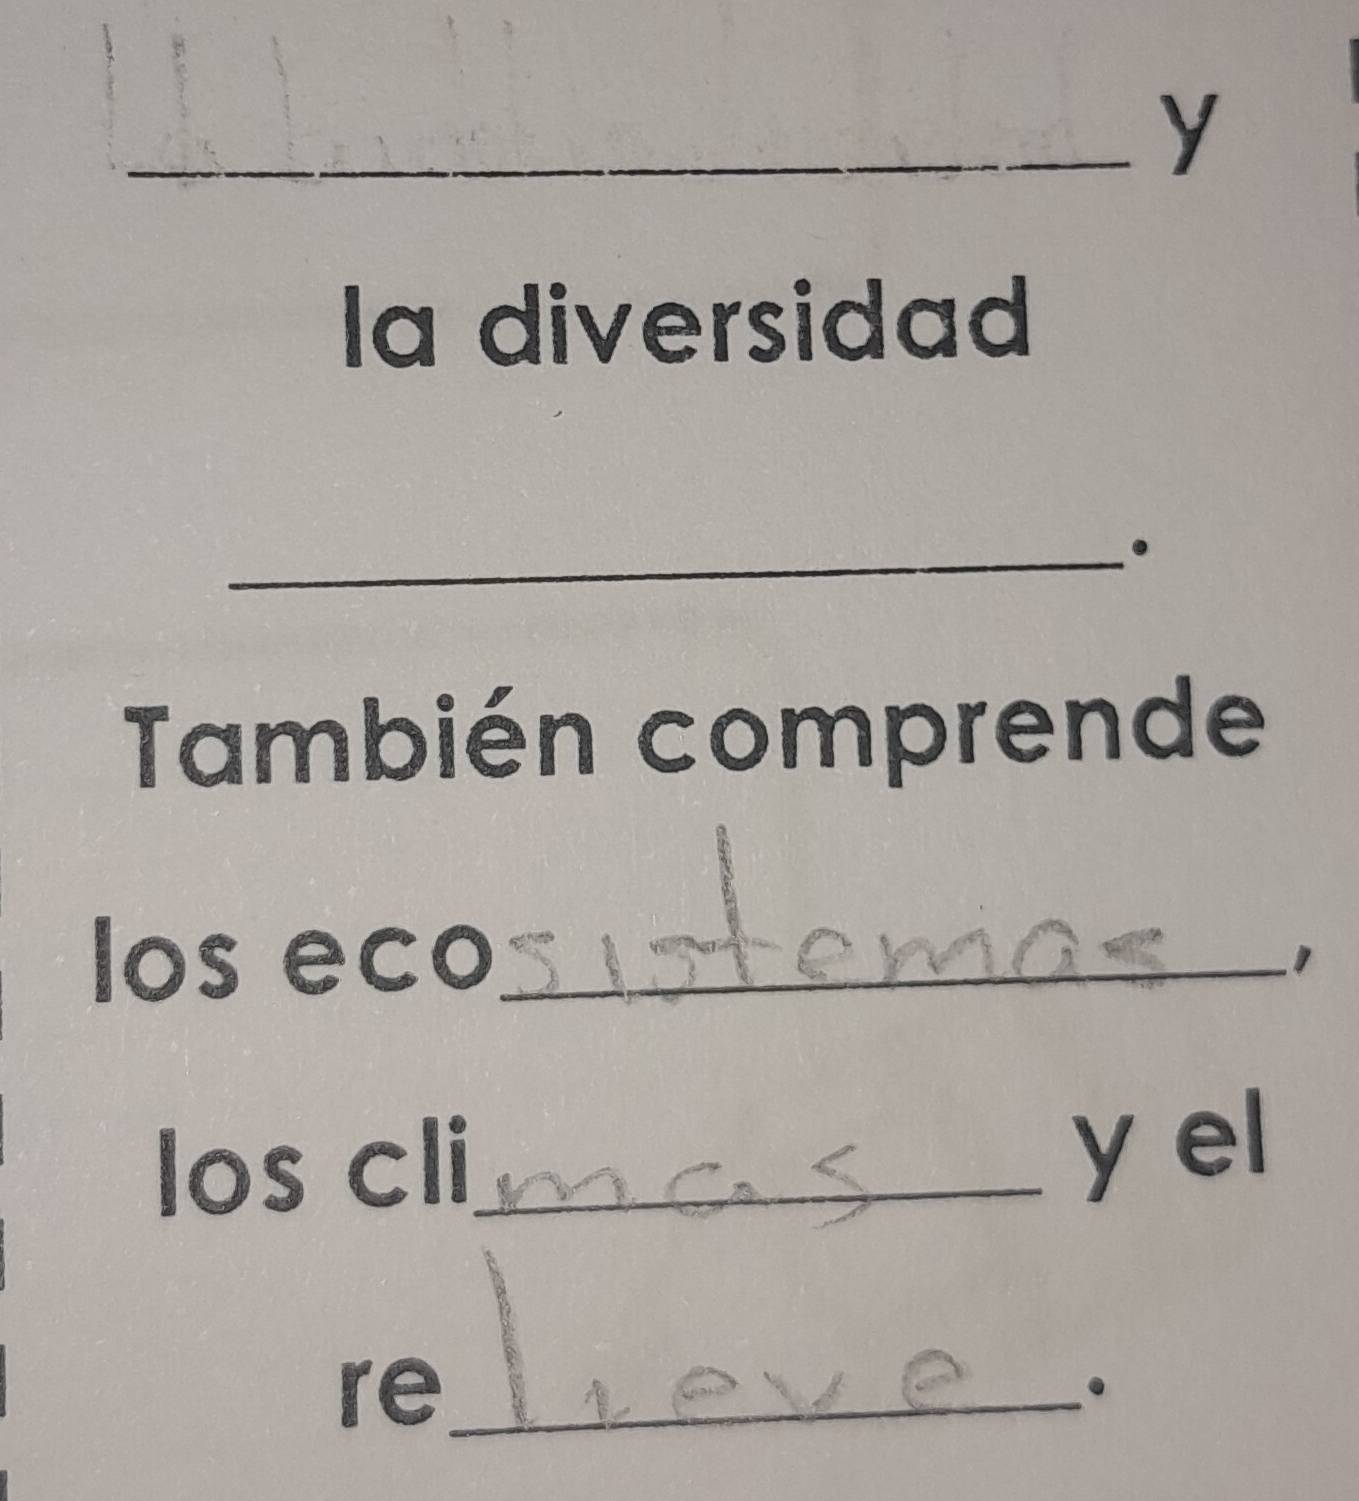 y
la diversidad
.
También comprende
los ecosistemas,
los climas y el
relieve.